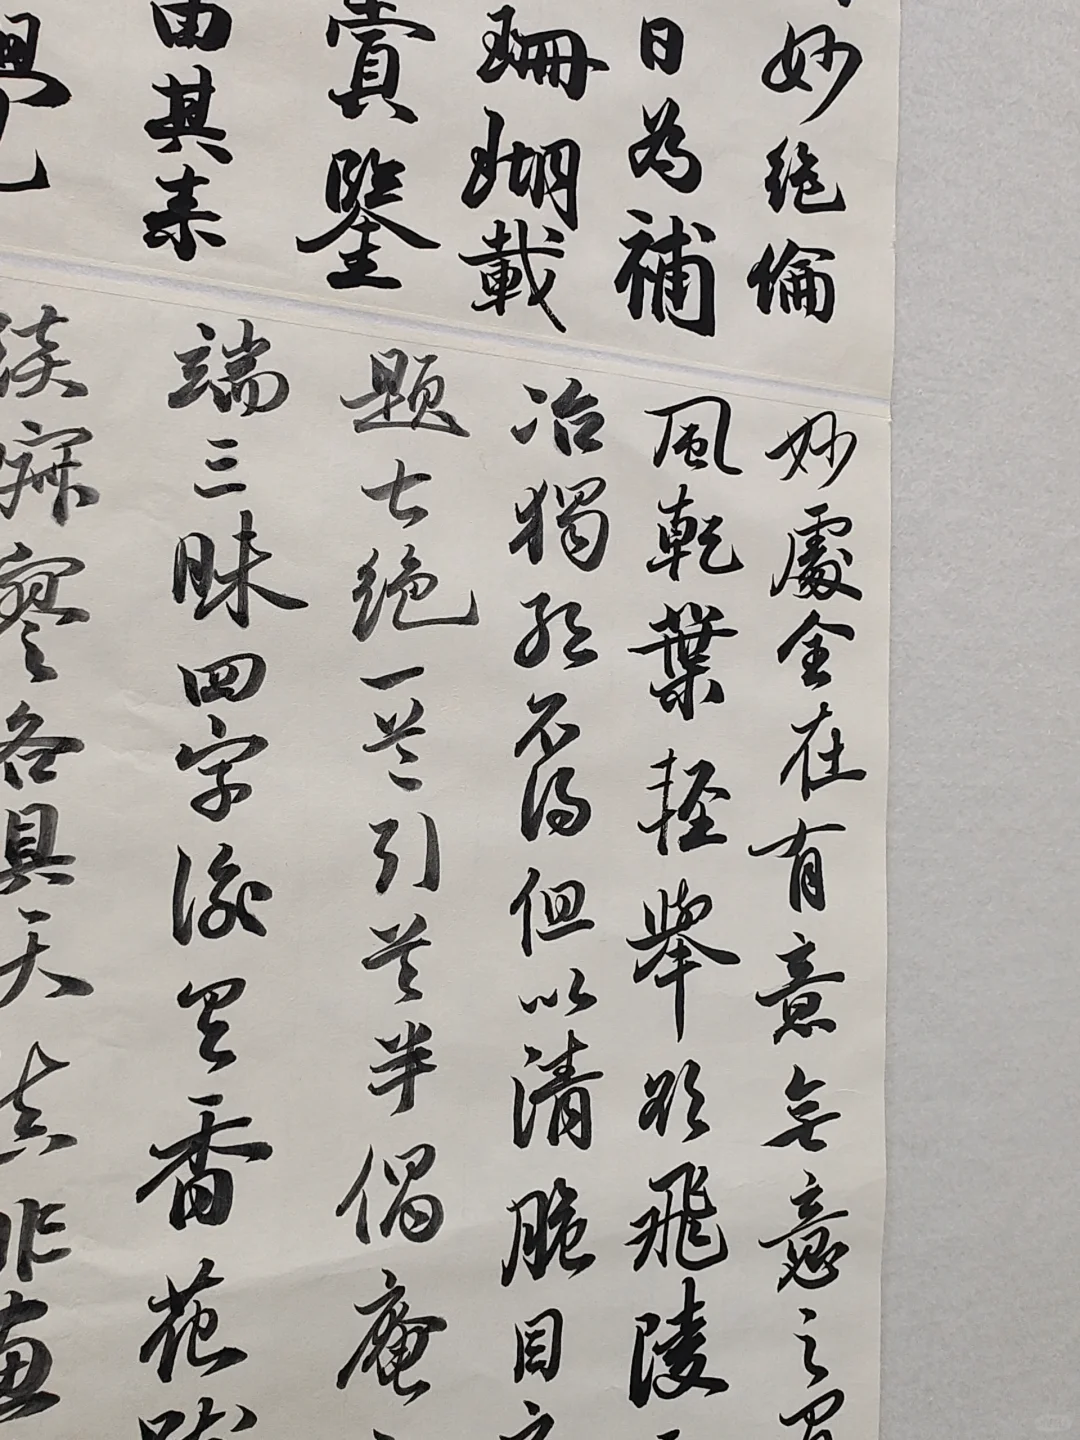 妙絕倫
日為補
珊瑚載
賞鑒
由其来
妙處全在有意無意之間
風乾葉輕舉欲飛陵
冶獨絕不為但以清脆目之
題七絕一首引首半偈庵
端三昧四字後
番花跋
淡寂寥各具天真非畫